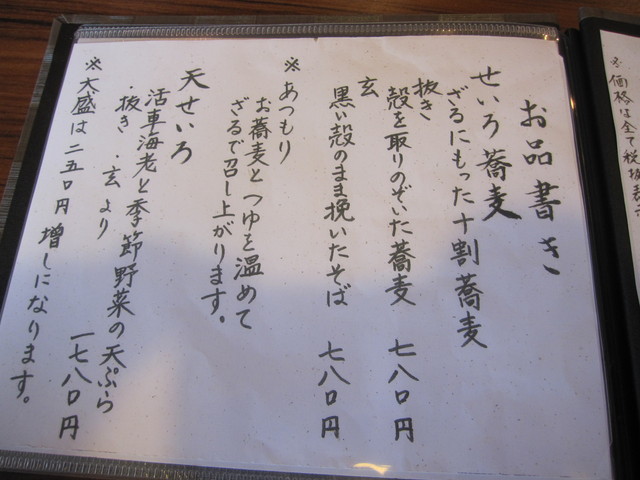 ※価格は全て税抜
お品書き
せいろ蕎麦
ざるにもった十割蕎麦
抜き
殻を取りのぞいた蕎麦 七八〇円
玄
黒い殻のまま挽いたそば 七八〇円
※あつもり
お蕎麦とつゆを温めて
ざるで召し上がります。
天せいろ
活車海老と季節野菜の天ぷら
・抜き ・玄 より 一七八〇円
※大盛は二五〇円 増しになります。